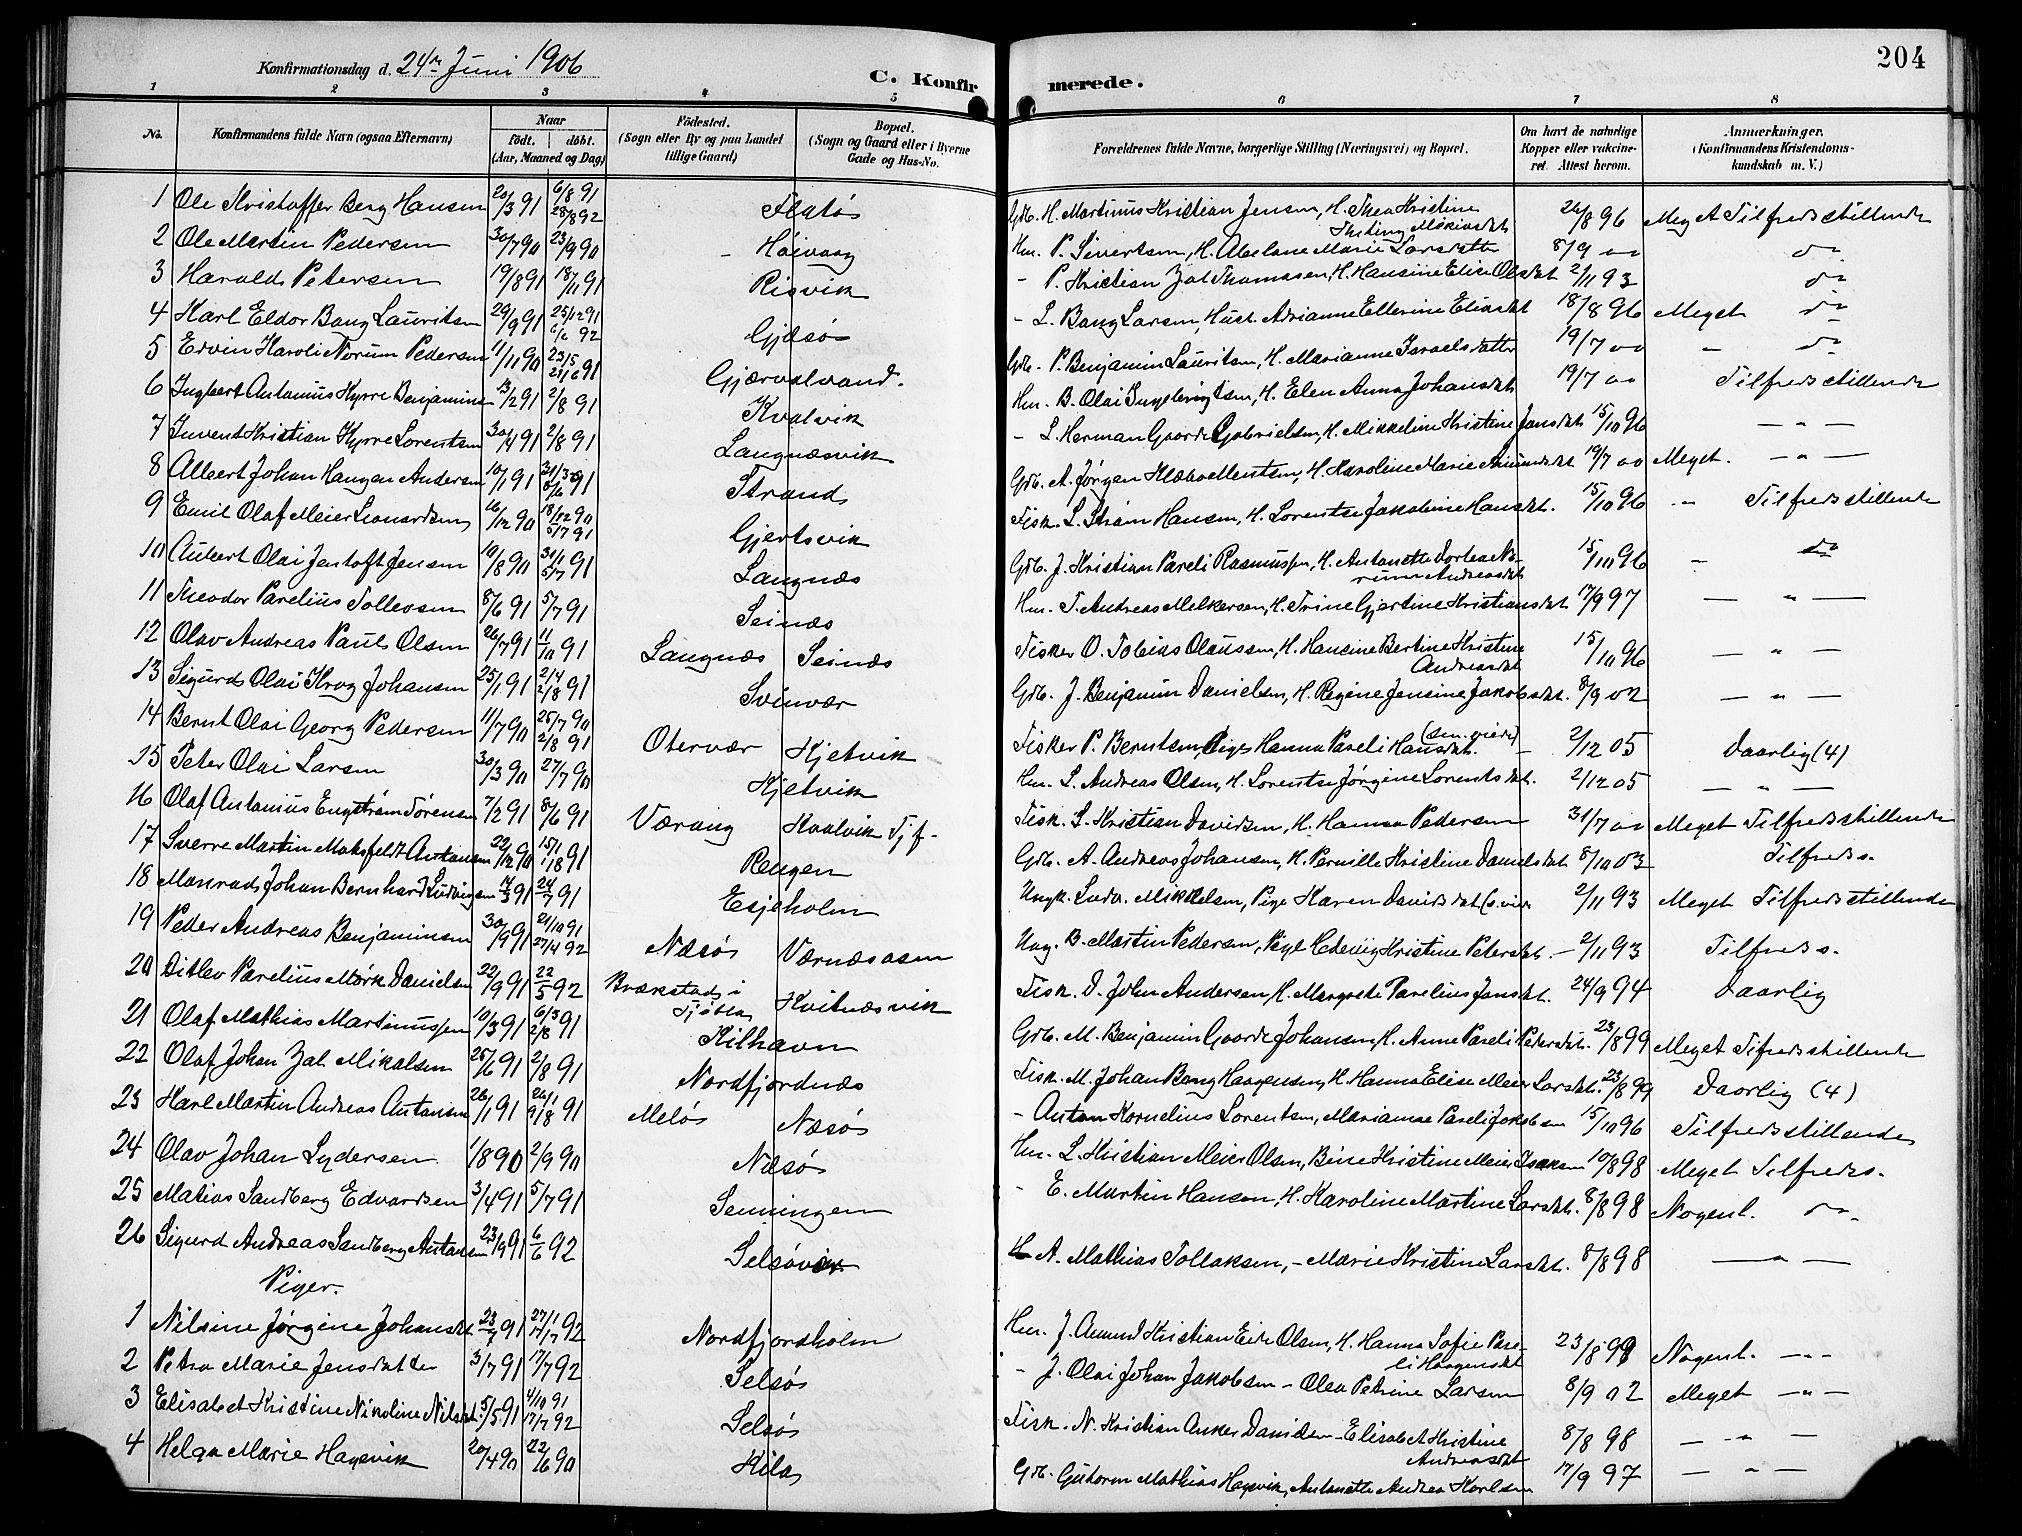 204
Konfirmationsdag d. 24de Juni 1906
C. Konfirmerede.
1 2 3 4 5 6 7 8
No.
Konfirmandens fulde Navn (ogsaa Efternavn)
Naar
födt. döbt.
(Aar, Maaned og Dag)
Födested.
(Sogn eller By og paa Landet tillige Gaard)
Bopæl.
(Sogn og Gaard eller i Byerne Gade og Hus-No.
Forældrenes fulde Navne, borgerlige Stilling (Næringsvei) og Bopæl.
Om havt de naturlige Kopper eller vakcineret. Attest herom.
Anmærkninger.
(Konfirmandens Kristendomskundskab m. V.)
1 Ole Kristoffer Berg Hansen 20/3 91 6/8 91 28/8 92 Flatø Gdb. H. Martinus Kristian Jensen, H. Thea Kristine 26/8 96 Meget Tilfredsstillende
2 Ole Martin Pedersen 30/7 90 23/9 90 Høivaag Hm. P. Sivertsen, H. Abelone Marie Larsdatter 8/9 00 do
3 Harald Petersen 19/8 91 18/11 91 Risvik - P. Kristian Zal Thomassen, H. Hansine Elise Olsdat 2/11 93 do
4 Karl Eldor Bang Lauritsen 29/9 91 25/12 91 6/6 92 Gjæsø - L. Bang Larsen, Hust. Adrianne Ellerine Eliasdt 18/8 96 Meget do
5 Edvin Karoli Norum Pedersen 11/11 90 23/5 21/6 91 Gjærvalvand. Gdb. P. Benjamin Lauritsen, H. Marianne Israelsdatter 19/7 00 - do
6 Ingbert Antonius Kyrre Benjaminsen 13/2 91 2/8 91 Kvalvik Hm. B. Olai Ingebrigtsen, H. Elen Anna Johansdat 19/7 00 Tilfredsstillende
7 Juvent Kristian Kyrre Lorentsen 30/4 91 2/8 91 Langnæsvik - L. Herman Gaarde Gabrielsen, H. Mikkeline Kristine Jonsdat 15/10 96 - " -
8 Albert Johan Haugan Andersen 10/1 91 31/3 91 Strand Gdb. A. Jørgen Klæboe Mentsen, H. Karoline Marie Amundsdat 19/7 00 Meget. - " -
9 Emil Olaf Meier Leonardsen 16/12 90 18/12 90 5/7 91 Gjertsvik Fisk. L. Strøm Hansen, H. Lorentse Jakobine Hansdat. 15/10 96 - Tilfredsstillende
10 Aubert Olai Jentoft Jensen 10/8 90 30/1 5/7 91 Langnæs Gdb. J. Kristian Pareli Rasmussen, H. Antonette Dortea Norum Andreasdat 15/10 96 - do
11 Theodor Parelius Tollevsen 8/6 91 5/7 91 Seinæs Hm. T. Andreas Melkersen, H. Trine Gjertine Kristiansdat 17/9 97 - " -
12 Olav Andreas Pauls Olsen 26/7 91 11/10 91 Langnæs Seinæs Fisker O. Tobias Olaussen, H. Hansine Bertine Kristine Andreasdat 15/10 96 - " -
13 Sigurd Olai Krog Johansen 25/1 91 2/4 2/8 91 Svinvær Gdb. J. Benjamin Danielsen, H. Regine Jensine Jakobsdat 8/9 02 - " -
14 Bernt Olai Georg Pedersen 11/7 90 25/7 90 2/8 91 Otervær Kjetvik Fisker P. Berntsen, Pige Hanna Pareli Hansdat. 2/12 05 Daarlig (4)
15 Peter Olai Larsen 30/3 90 27/7 90 Kjetvik Hm. L. Andreas Olsen, H. Lorentse Jørgine Lorentsdat. 2/12 05 - " -
16 Olaf Antonius Engstrøm Sørensen 7/2 91 8/6 91 Værang Kvalvik Tjf- Fisk. S. Kristian Davidsen, H. Hanna Pedersen 31/7 00 Meget Tilfredsstillende
17 Sverre Martin Maksfeldt Antonsen 22/12 90 15/1 91 Rengen Gdb. A. Andreas Johansen, H. Pernille Kristine Danielsdat 8/10 03 Tilfreds.
18 Monrad Johan Bernhard Ludvigsen 14/3 91 24/7 91 Esjeholm Ungk. Ludv. Mikkelsen, Pige Karen Davidsdat 2/11 93 Meget Tilfredsstillende
19 Peder Andreas Benjaminsen 30/9 91 21/10 91 27/4 92 Næsø Værnæsosen Ung. B. Martin Pedersen, Pige Hedevig Kristine Petersdat. - 2/11 93 Tilfreds.
20 Ditlev Parelius Mørk Danielsen 22/9 91 22/5 92 Brækstad i Tjøtta Kvitnæsvik Fisk. D. John Andersen, H. Margrete Parelius Jonsdat. 24/9 94 Daarlig
21 Olaf Mathias Martinussen 10/3 91 6/3 2/8 91 Kilhavn Gdb. M. Benjamin Gaarde Johansen, H. Anne Pareli Petersdat. 23/8 99 Meget Tilfredsstillende
22 Olaf Johan Zal Mikalsen 25/6 91 2/8 91 Nordfjordnæs Fisk. M. Johan Bang Haagensen, H. Hanna Elise Meier Larsdat. 23/8 99 Daarlig (4)
23 Karl Martin Andreas Antonsen 26/1 91 26/1 9/8 91 Melø Næsø - Anton Kornelius Lorentsen, Marianne Pareli Jakobsen 15/10 96 Tilfredsstillende
24 Olav Johan Lydersen 1/8 90 2/9 90 Næsø Hm. L. Kristian Meier Olsen, Bine Kristine Meier Isaksen 10/8 98 Meget Tilfreds.
25 Matias Sandberg Edvardsen 3/4 91 5/7 91 Senningen - E. Martin Hansen, H. Karoline Martine Larsdat. 8/8 98 Nogenl. do.
26 Sigurd Andreas Sandberg Antonsen 23/9 91 6/6 92 Selsøvik H A. Mathias Tollaksen, - Marie Kristine Larsdat. 8/8 98 - " -
Piger.
1 Nilsine Jørgine Johansdat 23/7 91 27/1 17/7 92 Nordfjordholm Hm. J. Amund Kristian Eide Olsen, H. Hanna Sofie Pareli Haagensdat 23/8 99 Nogenl. - " -
2 Petra Marie Jensdatter 3/7 91 17/7 92 Selsø - J. Olai Johan Jakobsen - Olea Petrine Larsen 8/9 02 Meget - " -
3 Elisabet Kristine Nikoline Nilsdat. 5/5 91 4/10 91 17/7 92 Selsø Fisk. N. Kristian Anker Davidsen - Elisabet Kristine Andreasdat 8/8 98 - " -
4 Helga Marie Hagevik 20/4 90 22/6 90 Kila Gdb. Gutorm Mathias Hagevik, Antonette Andrea Karlsen 17/9 97 - " -